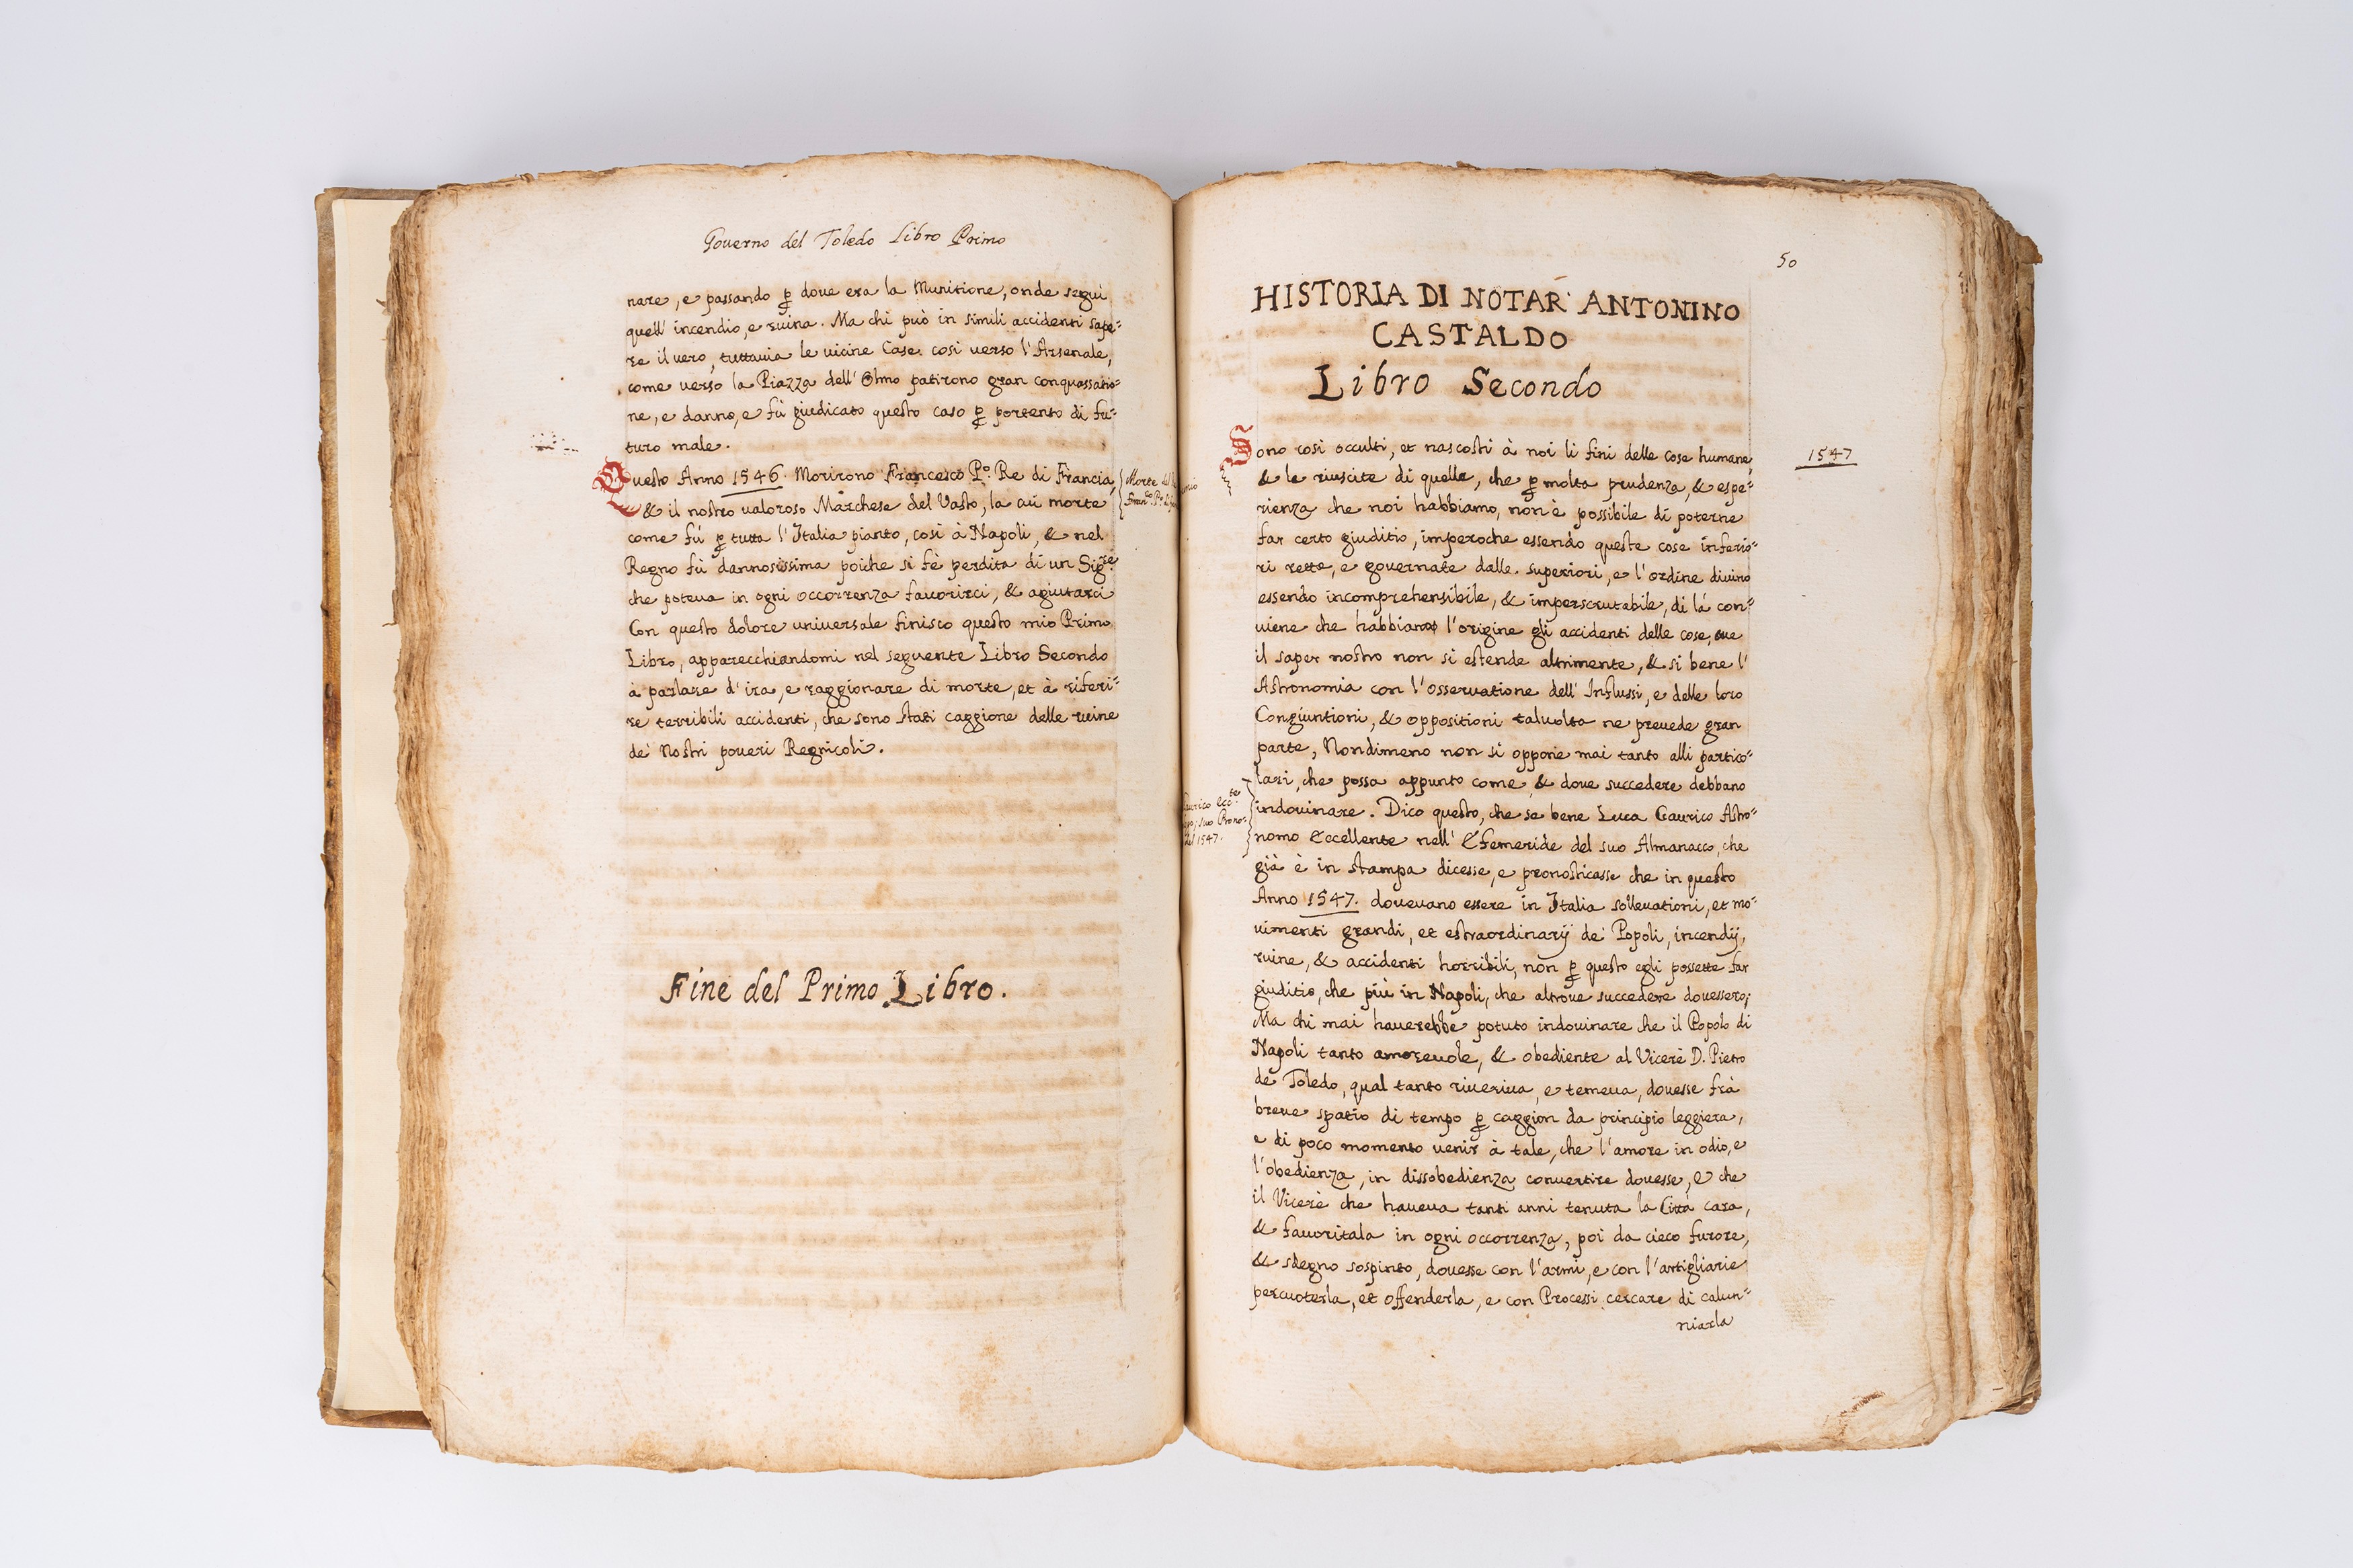 Gouerno del Toledo Libro Primo
nare, e passando p̱ doue era la Munitione, onde seguì
quell' incendio, e ruina. Ma chi può in simili accidenti sape=
re il uero, tuttauia le uicine Case così uerso l'Arsenale,
come uerso la Piazza dell' Olmo patirono gran conquassatio=
ne, e danno, e fù giudicato questo caso p̱ portento di fu=
turo male.
Questo Anno 1546. Morirono Francesco P.º Re di Francia,
& il nostro ualoroso Marchese del Vasto, la cui morte
come fù p̱ tutta l'Italia pianto, così à Napoli, & nel
Regno fù dannosissima poiche si fè perdita di un Sig.re
che poteua in ogni occorrenza fauorirci, & agiutarci
Con questo dolore uniuersale finisco questo mio Primo
Libro, apparecchiandomi nel seguente Libro Secondo
à parlare d'ira, e raggionare di morte, et à riferi=
re terribili accidenti, che sono stati caggione delle ruine
de' Nostri poueri Regnicoli.
Morte
Fran.co P.º
Fine del Primo Libro.
50
HISTORIA DI NOTAR' ANTONINO
CASTALDO
Libro Secondo
1547
Sono così occulti, et nascosti à noi li fini delle cose humane,
& le riuscite di quelle, che p̱ molta prudenza, & espe=
rienza che noi habbiamo, non è possibile di poterne
far certo giuditio, imperoche essendo queste cose inferio=
ri rette, e gouernate dalle superiori, e l'ordine diuino
essendo incomprehensibile, & imperscrutabile, di là con=
uiene che habbiano l'origine gli accidenti delle cose, oue
il saper nostro non si estende altrimente, & si bene l'
Astronomia con l'osseruatione dell' Influssi, e delle loro
Congiuntioni, & oppositioni taluolta ne preuede gran
parte, Nondimeno non si oppone mai tanto alli partico=
lari, che possa appunto come, & doue succedere debbano
indouinare. Dico questo, che se bene Luca Gaurico Astro=
nomo Eccellente nell' Efemeride del suo Almanacco, che
già è in stampa dicesse, e pronosticasse che in questo
Anno 1547. doueuano essere in Italia solleuationi, et mo=
uimenti grandi, et estraordinarij de' Popoli, incendij,
ruine, & accidenti horribili, non p̱ questo egli possette far
giuditio, che più in Napoli, che altroue succedere douessero;
Ma chi mai hauerebbe potuto indouinare che il Popolo di
Napoli tanto amoreuole, & obediente al Vicerè D. Pietro
de Toledo, qual tanto riueriua, e temeua, douesse frà
breue spatio di tempo p̱ caggion da principio leggiera,
e di poco momento uenir à tale, che l'amore in odio, e
l'obedienza, in dissobedienza conuertire douesse, e che
il Vicerè che haueua tanti anni tenuta la Città cara,
& fauoritala in ogni occorrenza, poi da cieco furore,
& sdegno sospinto, douesse con l'armi, e con l'artigliarie
percuoterla, et offenderla, e con Processi cercare di calun=
niarla
suo Prono=
1547.